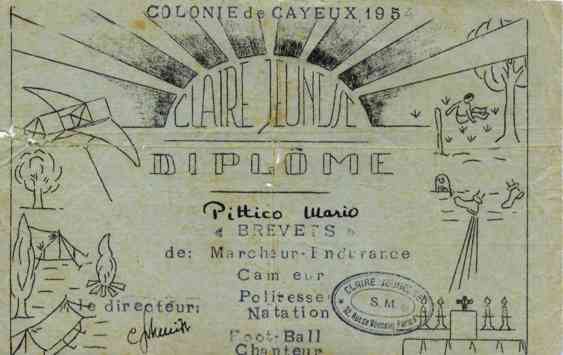 COLONIE de CAYEUX, 1954
CLAIRE JEUNESSE
DIPLÔME
Pittico Mario
« BREVETS »
de: Marcheur-Endurance
Cam eur
Politesse
le directeur:
Natation
Foot-Ball
Chanteur
CLAIRE JEUNESSE
S.M.